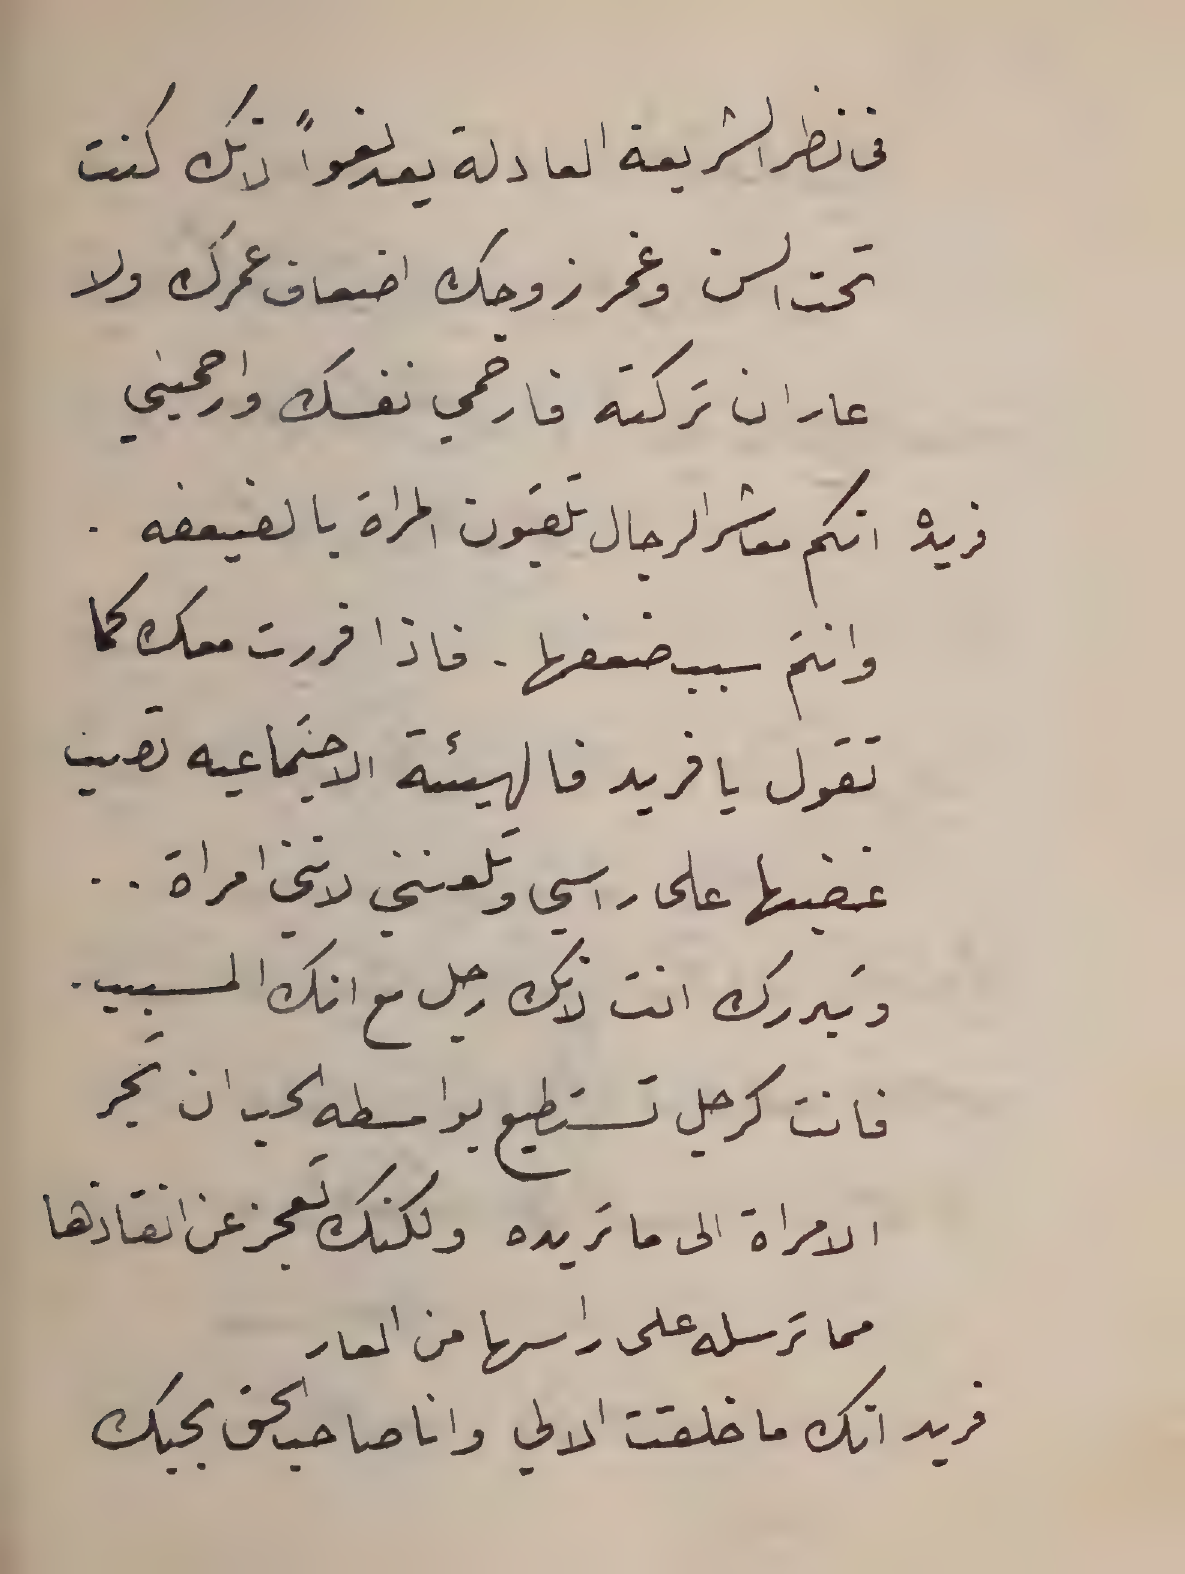 في نظر الشريعة العادلة يعد لغواً لانك كنت
تحت السن وعمر زوجك اضعاف عمرك ولا
عار ان تركته فارحمي نفسك وارحميني
فريدة انكم معاشر الرجال تلقبون المراة بالضعيفه .
وانتم سبب ضعفها . فاذا فررت معك كما
تقول يا فريد فالهيئة الاجتماعيه تصب
غضبها على راسي وتلعنني لانني امراة . .
وتبررك انت لانك رجل مع انك المسبب .
فانت كرجل تستطيع بواسطه الحب ان تجر
الامراة الى ما تريده ولكنك تعجز عن انقاذها
مما ترسله على راسها من العار
فريد انك ما خلقت الا لي وانا صاحب الحق بحبك